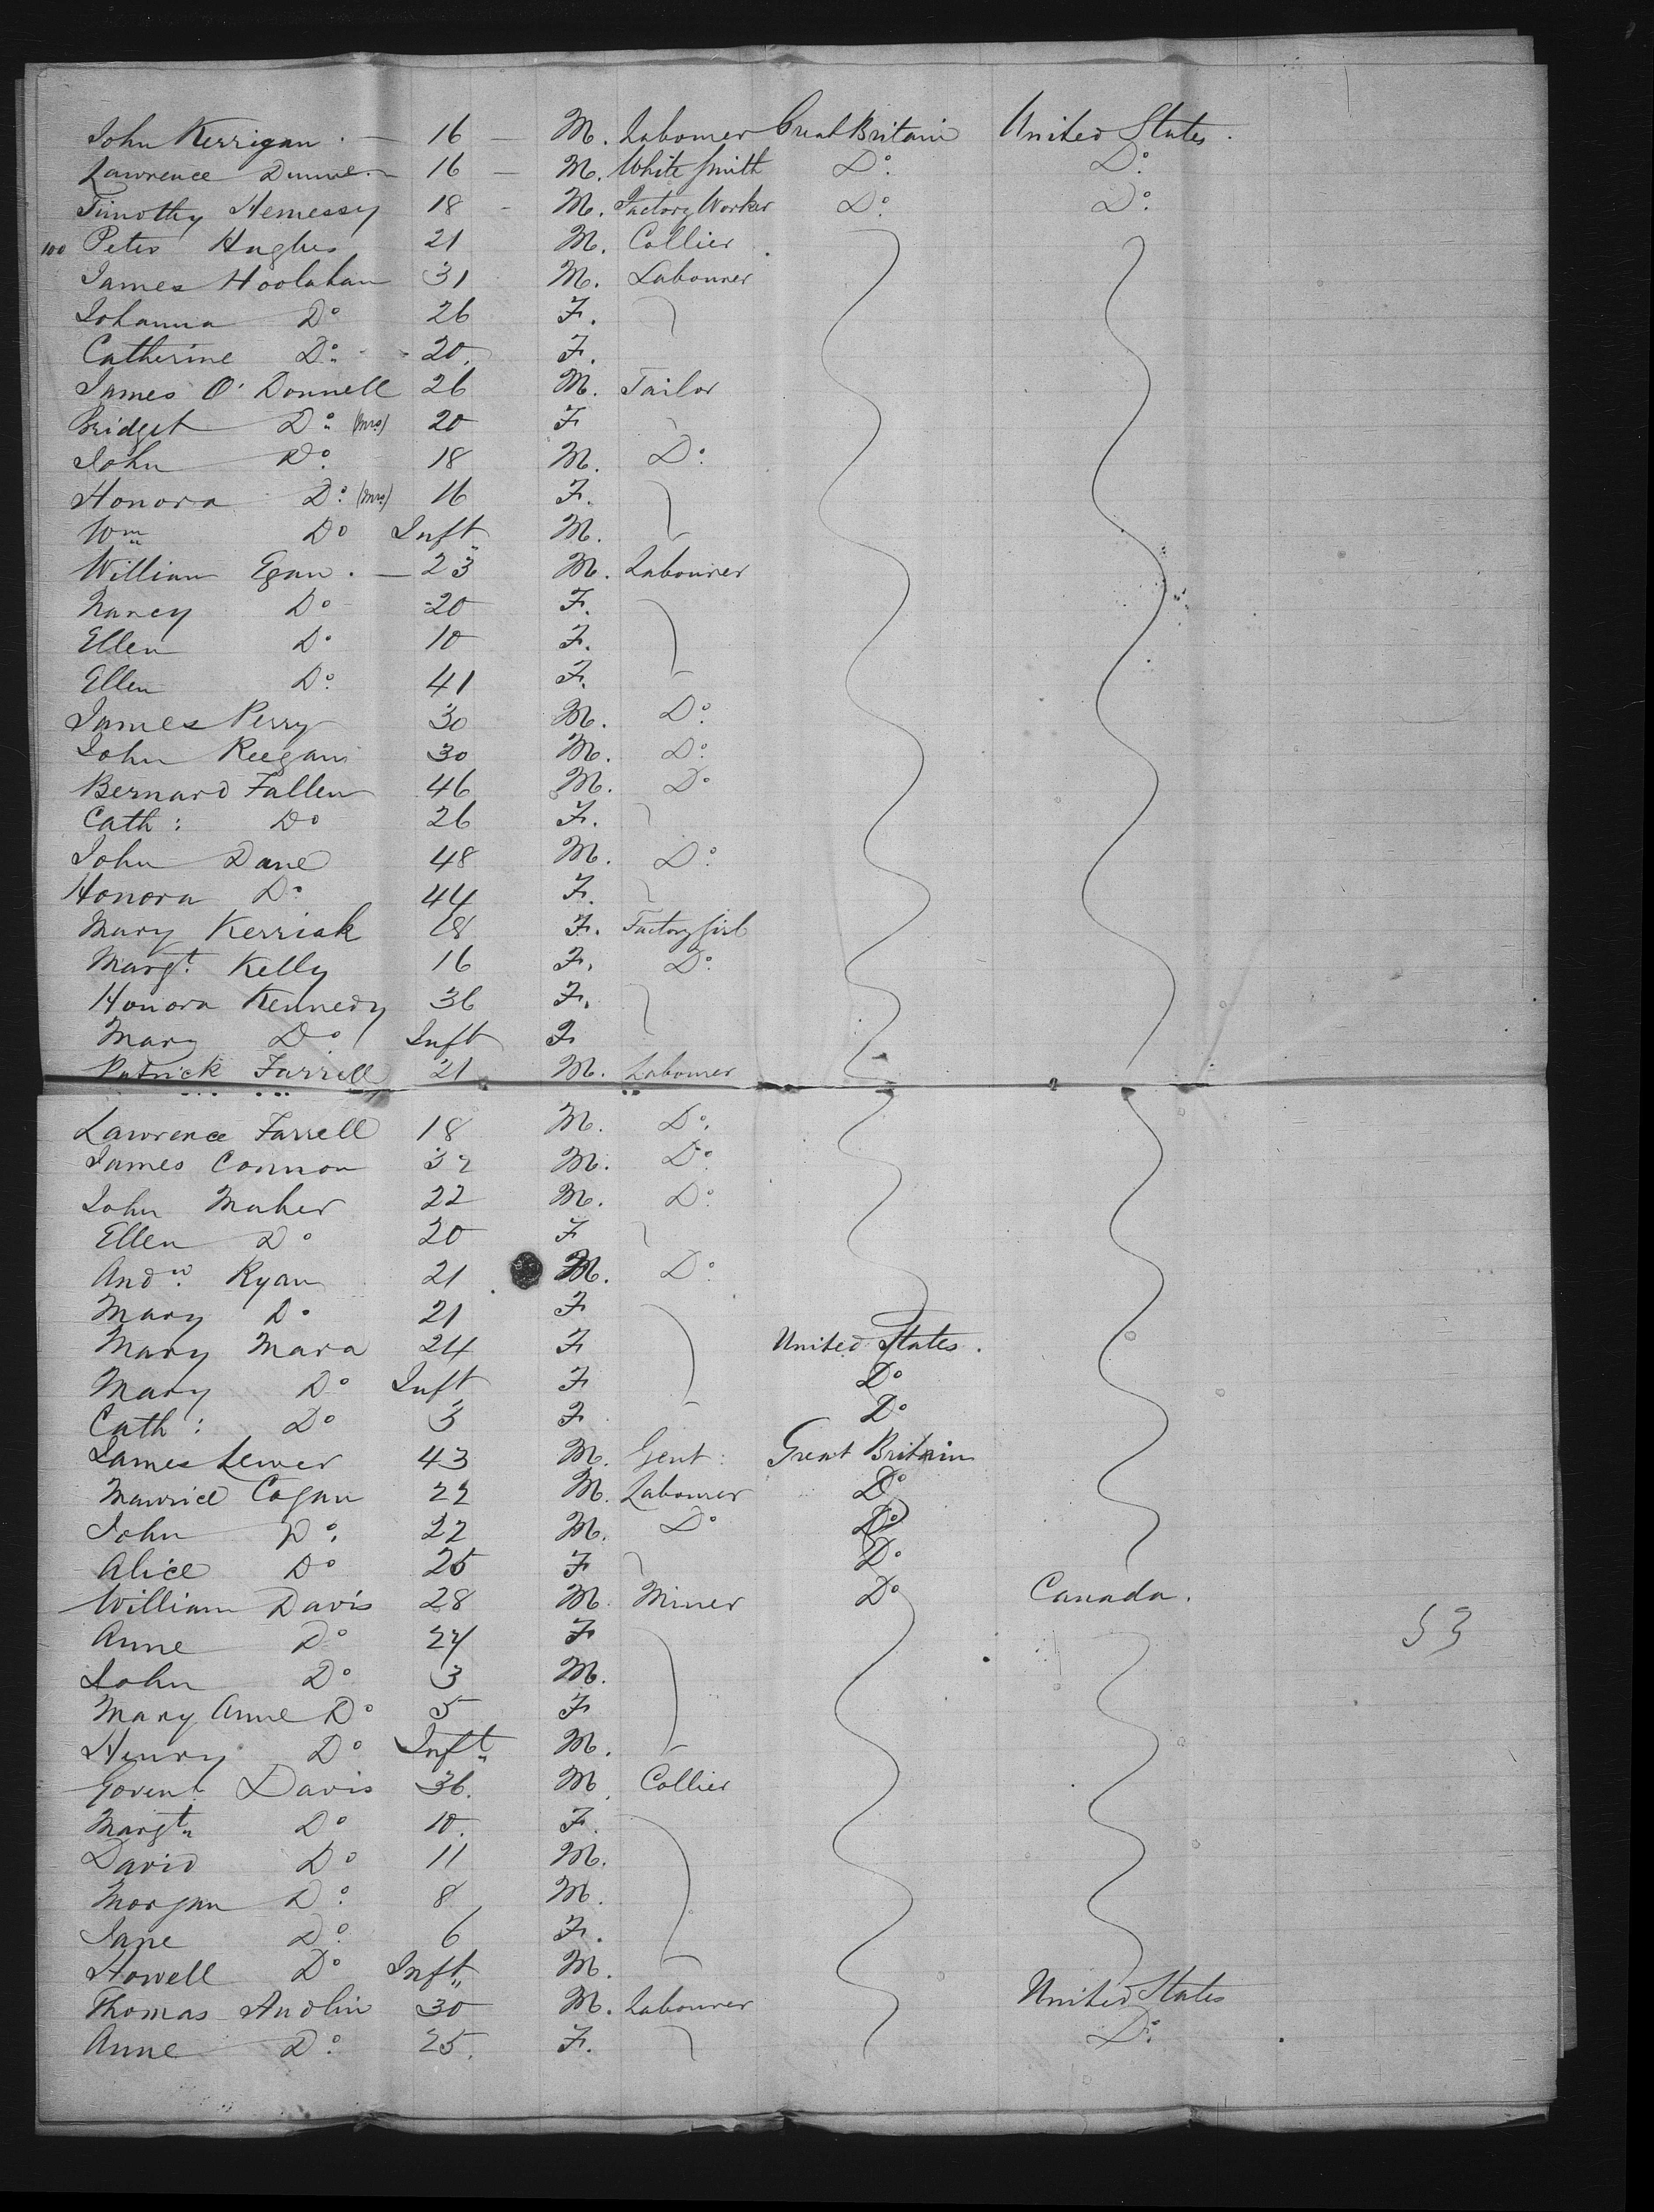 John Kerrigan . — 16 — M. Labourer Great Britain United States .
Lawrence Dunne . — 16 — M. White smith Do. Do.
Timothy Hennessy 18 - M. Factory Worker Do. Do.
100 Peter Hughes 21 M. Collier
James Hoolahan 31 M. Labourer
Johanna Do 26 F.
Catherine Do. 20. F.
James O' Donnell 26 M. Tailor
Bridget Do. (Mrs) 20 F
John Do. 18 M. Do.
Honora Do. (Mrs) 16 F.
Wm Do Inft M.
William Egan . — 23 M. Labourer
Nancy Do 20 F.
Ellen Do 10 F.
Ellen Do. 41 F.
James Perry 30 M. Do.
John Reegan 30 M. Do.
Bernard Fallen 46 M. Do
Cath : Do 26 F.
John Dane 48 M. Do.
Honora Do. 44 F.
Mary Kerriak 18 F. Factory Girl
Margt. Kelly 16 F. Do.
Honora Kennedy 36 F.
Mary Do. Inft F
Patrick Farrell 21 M. Labourer
Lawrence Farrell 18 M. Do.
James Connor 32 M. Do.
John Maher 22 M. Do.
Ellen Do 20 F
Andw. Ryan 21 M. Do.
Mary Do 21 F
Mary Mara 24 F United States .
Mary Do Inft F Do
Cath : Do 3 F Do
James Lewer 43 M. Gent : Great Britain
Maurice Cogan 22 M. Labourer Do
John Do. 22 M. Do Do
Alice Do 25 F Do
William Davis 28 M Miner Do Canada .
Anne Do 24 F 53
John Do 3 M.
Mary Anne Do 5 F
Henry Do Inft M.
Davis 36. M. Collier
Margt Do 10. F.
David Do 11 M.
Morgan Do. 8 M.
Jane Do. 6 F.
Howell Do Inft M.
Thomas Audlin 30 M. Labourer United States
Anne Do. 25. F. Do.